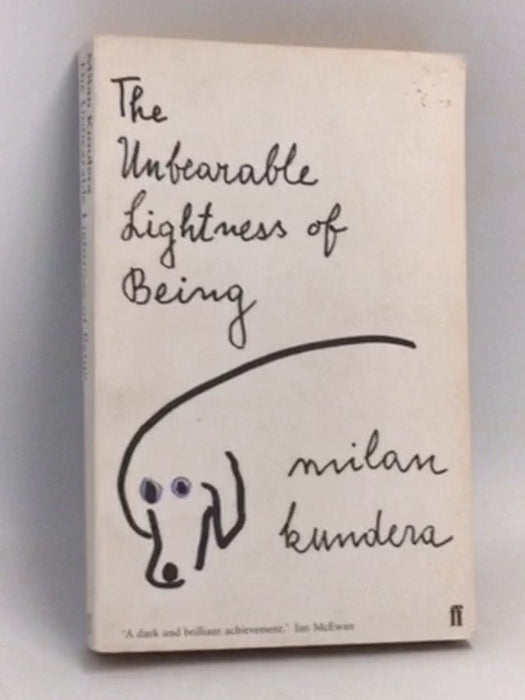 The
Unbearable
Lightness of
Being
milan
kundera
'A dark and brilliant achievement.' Ian McEwan
ff
Milan Kundera
The Unbearable Lightness of Being